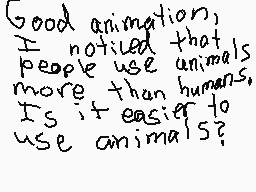 Good animation,
I noticed that
people use animals
more than humans.
Is it easier to
use animals?